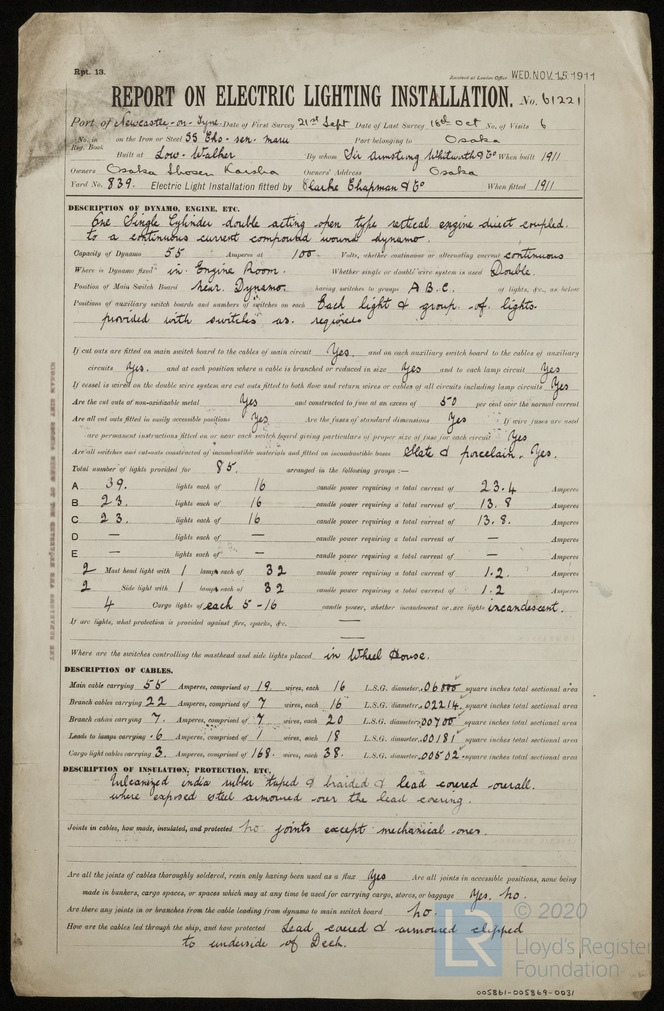 Rpt. 13.
Received at London Office WED. NOV. 15 1911
REPORT ON ELECTRIC LIGHTING INSTALLATION. No. 61221
Port of Newcastle-on-Tyne Date of First Survey 21st Sept Date of Last Survey 18th Oct No. of Visits 6
No. in Reg. Book on the Iron or Steel SS Cho-sen-maru Port belonging to Osaka
Built at Low-Walker By whom Sir Armstrong Whitworth & Co When built 1911
Owners Osaka Shosen Kaisha Owners' Address Osaka
Yard No. 839. Electric Light Installation fitted by Clarke Chapman & Co When fitted 1911
DESCRIPTION OF DYNAMO, ENGINE, ETC.
One Single Cylinder double acting open type vertical engine direct coupled.
to a continuous current compound wound dynamo.
Capacity of Dynamo 55 Amperes at 100 Volts, whether continuous or alternating current continuous
Where is Dynamo fixed in Engine Room. Whether single or double wire system is used Double.
Position of Main Switch Board near Dynamo. having switches to groups A.B.C. of lights, &c., as below
Positions of auxiliary switch boards and numbers of switches on each Each light & group of lights
provided with switches as required
If cut outs are fitted on main switch board to the cables of main circuit Yes. and on each auxiliary switch board to the cables of auxiliary
circuits Yes. and at each position where a cable is branched or reduced in size Yes and to each lamp circuit Yes
If vessel is wired on the double wire system are cut outs fitted to both flow and return wires or cables of all circuits including lamp circuits Yes
Are the cut outs of non-oxidizable metal Yes and constructed to fuse at an excess of 50 per cent over the normal current
Are all cut outs fitted in easily accessible positions Yes Are the fuses of standard dimensions Yes If wire fuses are used
are permanent instructions fitted on or near each switch board giving particulars of proper size of fuse for each circuit Yes
Are all switches and cut-outs constructed of incombustible materials and fitted on incombustible bases Slate & porcelain. Yes.
Total number of lights provided for 85. arranged in the following groups :—
A 39. lights each of 16 candle power requiring a total current of 23.4 Amperes
B 23. lights each of 16 candle power requiring a total current of 13.8 Amperes
C 23. lights each of 16 candle power requiring a total current of 13.8. Amperes
D — lights each of — candle power requiring a total current of — Amperes
E — lights each of — candle power requiring a total current of — Amperes
2 Mast head light with 1 lamps each of 32 candle power requiring a total current of 1.2. Amperes
2 Side light with 1 lamps each of 32 candle power requiring a total current of 1.2 Amperes
4 Cargo lights of each 5-16 candle power, whether incandescent or arc lights incandescent.
If arc lights, what protection is provided against fire, sparks, &c. —
—
Where are the switches controlling the masthead and side lights placed in Wheel House.
DESCRIPTION OF CABLES.
Main cable carrying 55 Amperes, comprised of 19. wires, each 16 L.S.G. diameter, .06000 square inches total sectional area
Branch cables carrying 22 Amperes, comprised of 7 wires, each 16 L.S.G. diameter, .02214 square inches total sectional area
Branch cables carrying 7. Amperes, comprised of 7 wires, each 20 L.S.G. diameter, .00700 square inches total sectional area
Leads to lamps carrying .6 Amperes, comprised of 1 wires, each 18 L.S.G. diameter, .00181 square inches total sectional area
Cargo light cables carrying 3. Amperes, comprised of 168. wires, each 38. L.S.G. diameter, .00502 square inches total sectional area
DESCRIPTION OF INSULATION, PROTECTION, ETC.
Vulcanized india rubber taped & braided & lead covered overall.
where exposed steel armoured over the lead covering.
Joints in cables, how made, insulated, and protected no joints except mechanical ones.
Are all the joints of cables thoroughly soldered, resin only having been used as a flux Yes Are all joints in accessible positions, none being
made in bunkers, cargo spaces, or spaces which may at any time be used for carrying cargo, stores, or baggage Yes. no.
Are there any joints in or branches from the cable leading from dynamo to main switch board no.
How are the cables led through the ship, and how protected Lead covered & armoured clipped
to underside of Deck.
LR © 2020
Lloyd's Register
Foundation
005861-005869-0031